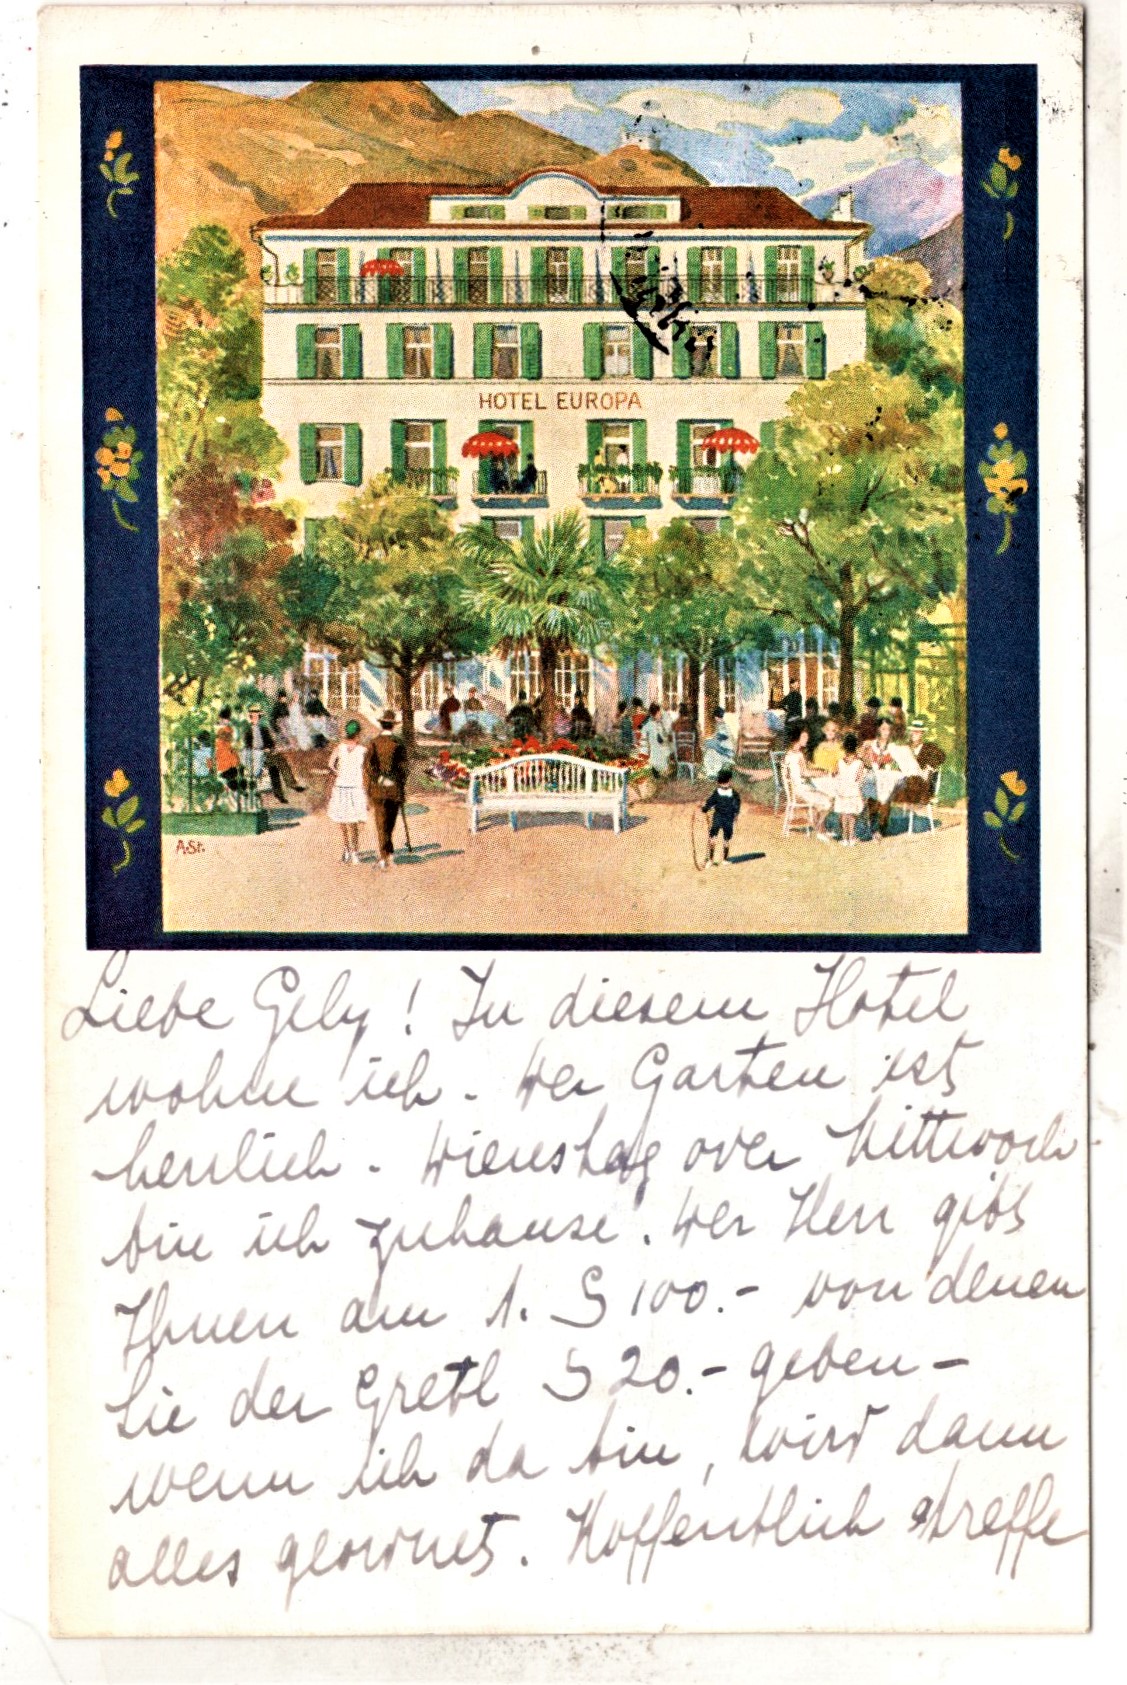 HOTEL EUROPA
A.St.
Liebe Gely! In diesem Hotel
wohne ich. Der Garten ist
herrlich. Dienstag oder Mittwoch
bin ich zuhause. Der Herr gibt
Ihnen am 1. S 100.- von denen
Sie der Gretl S 20.- geben -
wenn ich da bin, wird dann
alles geordnet. Hoffentlich treffe